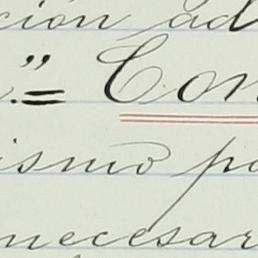 ción ad
." = Con
ismo po
necesar